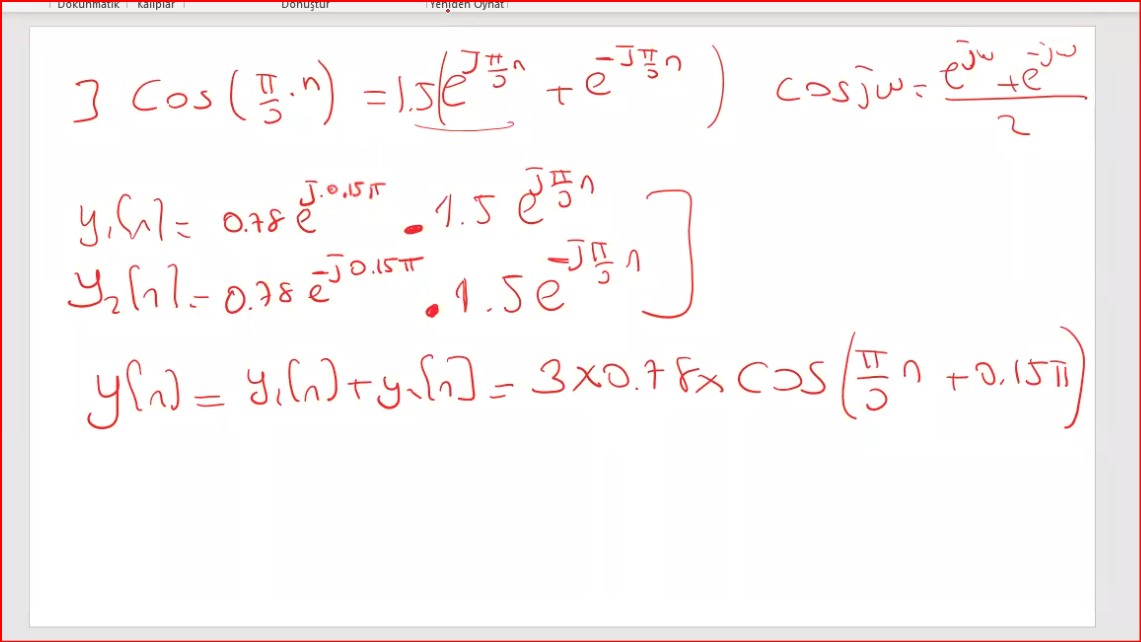 Dokunmatik Kalıplar Dönüştür Yeniden Oynat
3 Cos(π/3 . n) = 1.5(e^(jπ/3 n) + e^(-jπ/3 n)) cosjw = (e^(jw) + e^(-jw))/2
y₁[n] = 0.78 e^(j.0.15π) . 1.5 e^(jπ/3 n)
y₂[n] = 0.78 e^(-j0.15π) . 1.5 e^(-jπ/3 n)
y[n] = y₁[n] + y₂[n] = 3x0.78x COS(π/3 n + 0.15π)